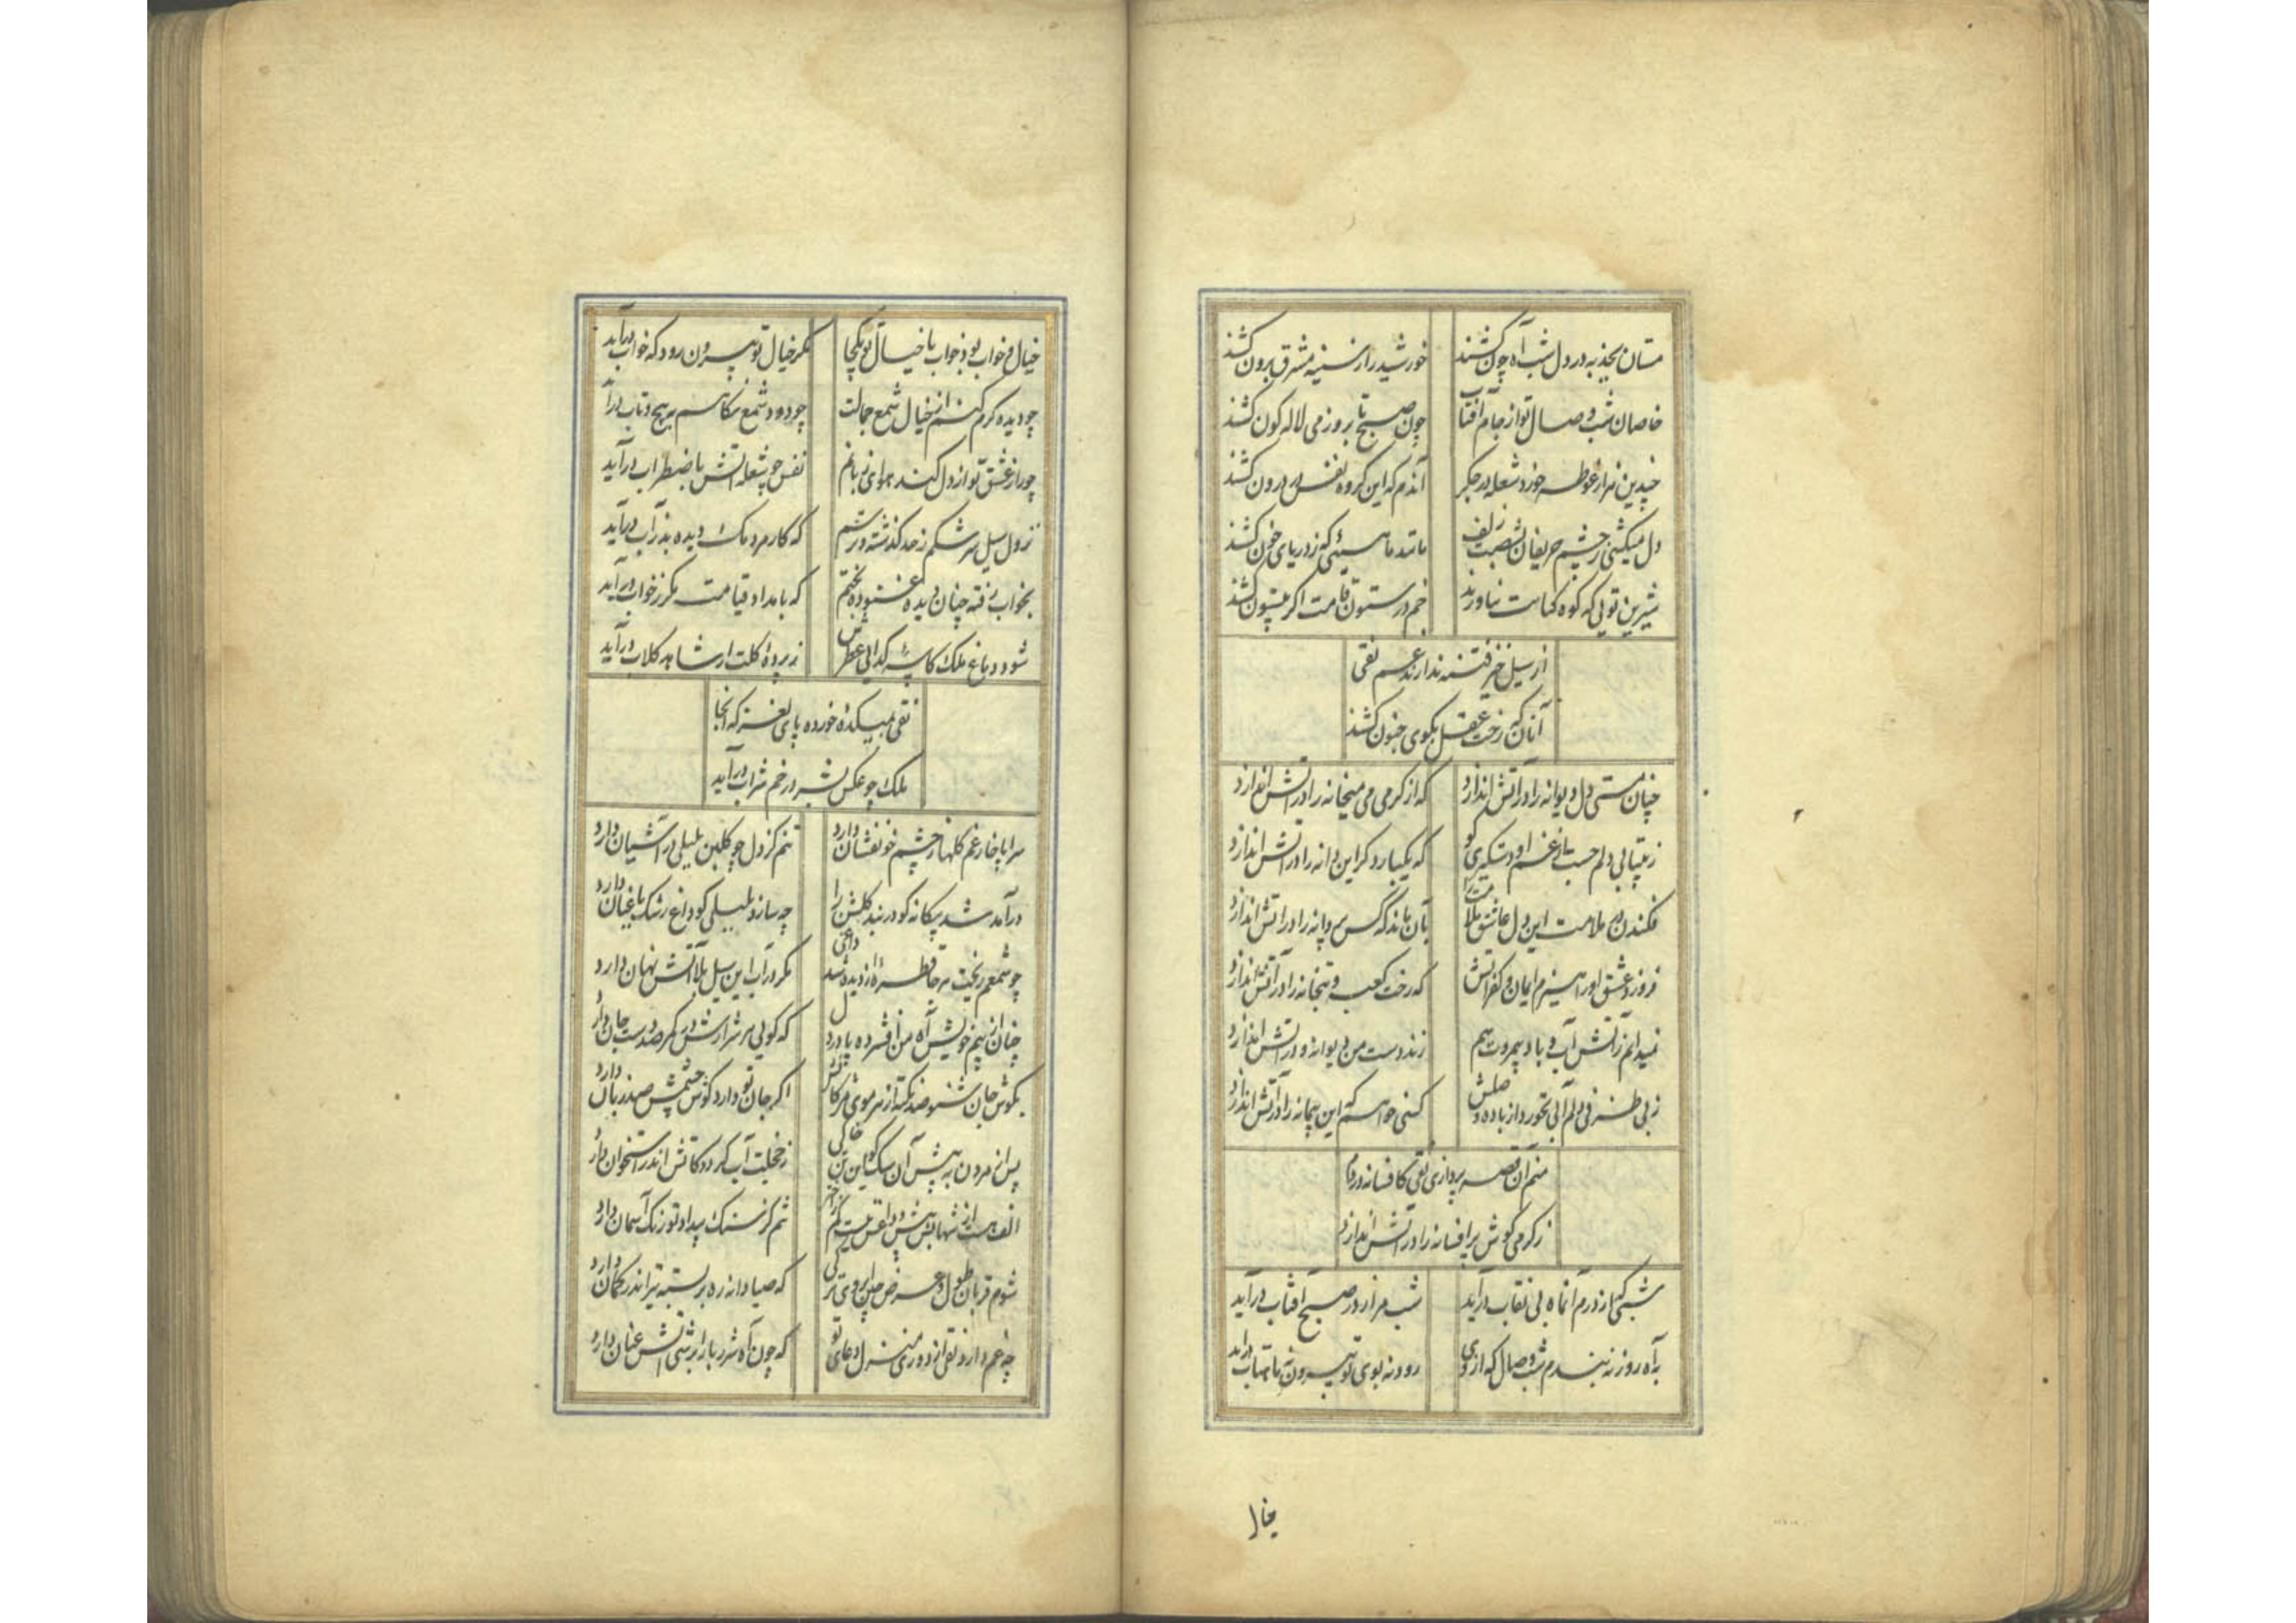 مستان بجذبه در دل شب آه چون کشند
خورشید را ز سینه مشرق برون کشند
خاصان شب وصال تو از جام آفتاب
چون صبح تا بروز می لاله کون کشند
چندین هزار غوطه خورد شعله در جکر
آندم که این کروه نفس در درون کشند
دل میکشی ز چشم حریفان بشصت زلف
مانند ماهیئی که ز دریای خون کشند
شیرین تویی که کوه کناهت نیاورند
خم در ستون قامت اکر بیستون کشند
از سیل خیز فتنه ندارند غم نقی
آنان که رخت عقل بکوی جنون کشند
چنان مستی دل دیوانه را در آتش اندازد
که از کرمی می میخانه را در آتش اندازد
ز بیتابی دلم حسب غم او دستکیری کو
که یکبار دکر این دانه را در آتش اندازد
فکندن در ملامت این دل عاشق ملامت را
بآن ماند که کس پروانه را در آتش اندازد
فروزد عشق او را هیزم ایمان و کفر آتش
که رخت کعبه و بتخانه را در آتش اندازد
نمیدانم ز آتش آب و باد بیمروت هم
زند دست من دیوانه و در آتش اندازد
ز بی ظرفی دلم آبی نخورد از باده وصلش
کسی خواهم که این پیمانه را در آتش اندازد
منم آن قصه پردازی نقی کافسانه دردم
ز کرمی کوش بر افسانه را در آتش اندازد
شبی کز درم آنماه بی نقاب درآید
شب مرا ز در صبح آفتاب درآید
به آه روزنه بندم شب وصال که از وی
رود نه بوی تو بیرون نه ماهتاب درآید
خیال
خیال و خواب بود خواب با خیال تو یکجا
مکر خیال تو بیرون رود که خواب درآید
چو دیده کرم کنم از خیال شمع جمالت
چو دود شمع نکاهم به پیچ و تاب درآید
چو راز عشق تو از دل کند هوای زبانم
نفس چو شعله آتش باضطراب درآید
نزول سیل سرشکم ز حد کذشته و ترسم
که کار مردمک دیده بند ز آب درآید
بخواب رفته چنان دیده غنوده بختم
که بامداد قیامت مکر ز خواب درآید
شود دماغ ملک کاسه کدایی عطرش
ز پرده کلت ار شاهد کلاب درآید
نقی بمیکده خورده پای لغز که آنجا
ملک چو عکس بشر در خم شراب درآید
سراپا خار غم کلها ز چشم خونفشان دارد
تنم کز دل چو کلبن بلبلی در آشیان دارد
درآمد شد بیکانه کو در بند کلشن را
چه سازد بلبلی کو داغ رشک باغبان دارد
چو شمعم ریخت هر جا قطره از دیده شد داغی
مکر در آب این سیل بلا آتش نهان دارد
چنان از بیم خویش آه من افسرده پا دردل
که کویی هر شرارش در کمر صد دست جان دارد
بکوش جان شنو صد نکته از هر موی مژکانش
اکر جان تو دارد کوش چشمش صد زبان دارد
پس از مردن به پیش آن سک کو این تن خاکی
ز خجلت آب کردد کاتش اندر استخوان دارد
تنم کز سنک بیداد تو رنک آسمان دارد
شوم قربان طول و عرض چین ابروی ترکی
که صیادانه ره بر بسته تیر اندر کمان دارد
چه غم دارد نقی از دوری منزل دعای تو
که چون آه شرر بار از پیش آتش عنان دارد